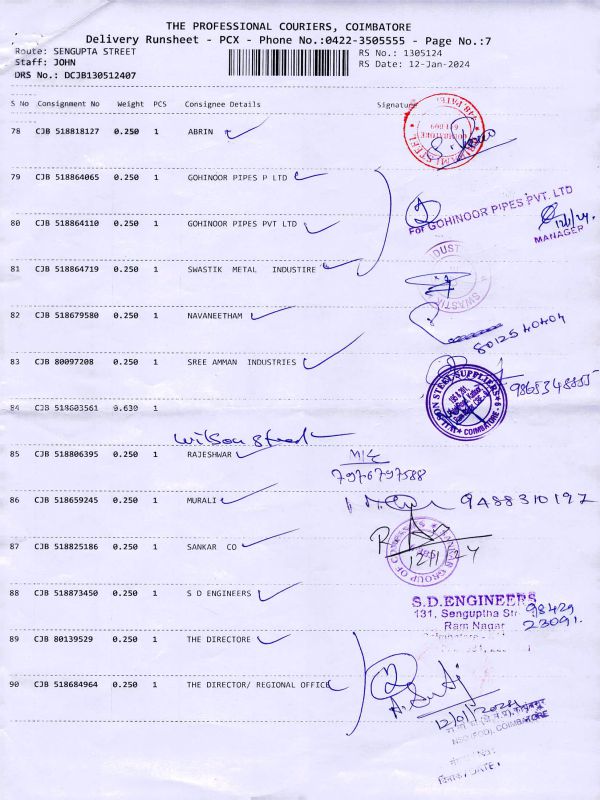 THE PROFESSIONAL COURIERS, COIMBATORE
Delivery Runsheet - PCX - Phone No.:0422-3505555 - Page No.:7
Route: SENGUPTA STREET
RS No.: 1305124
Staff: JOHN
RS Date: 12-Jan-2024
DRS No.: DCJB130512407
S No Consignment No Weight PCS Consignee Details Signature
78 CJB 518818127 0.250 1 ABRIN
79 CJB 518864065 0.250 1 GOHINOOR PIPES P LTD
For GOHINOOR PIPES PVT. LTD
80 CJB 518864110 0.250 1 GOHINOOR PIPES PVT LTD
12/1/24.
MANAGER
81 CJB 518864719 0.250 1 SWASTIK METAL INDUSTIRE
SWASTIK
82 CJB 518679580 0.250 1 NAVANEETHAM
8012540404
83 CJB 80097208 0.250 1 SREE AMMAN INDUSTRIES
9865348855
WILSON STEEL SUPPLIERS
COIMBATORE
84 CJB 518603561 0.630 1
Wilson steel
85 CJB 518806395 0.250 1 RAJESHWAR
7976797588
86 CJB 518659245 0.250 1 MURALI
9488310197
87 CJB 518825186 0.250 1 SANKAR CO
12/1/24
GROUP OF COMPANIES
88 CJB 518873450 0.250 1 S D ENGINEERS
S.D.ENGINEERS
131, Senguptha Str
Ram Nagar
98429
23091.
89 CJB 80139529 0.250 1 THE DIRECTORE
90 CJB 518684964 0.250 1 THE DIRECTOR/ REGIONAL OFFICE
12/01/2024
COIMBATORE
DATE.